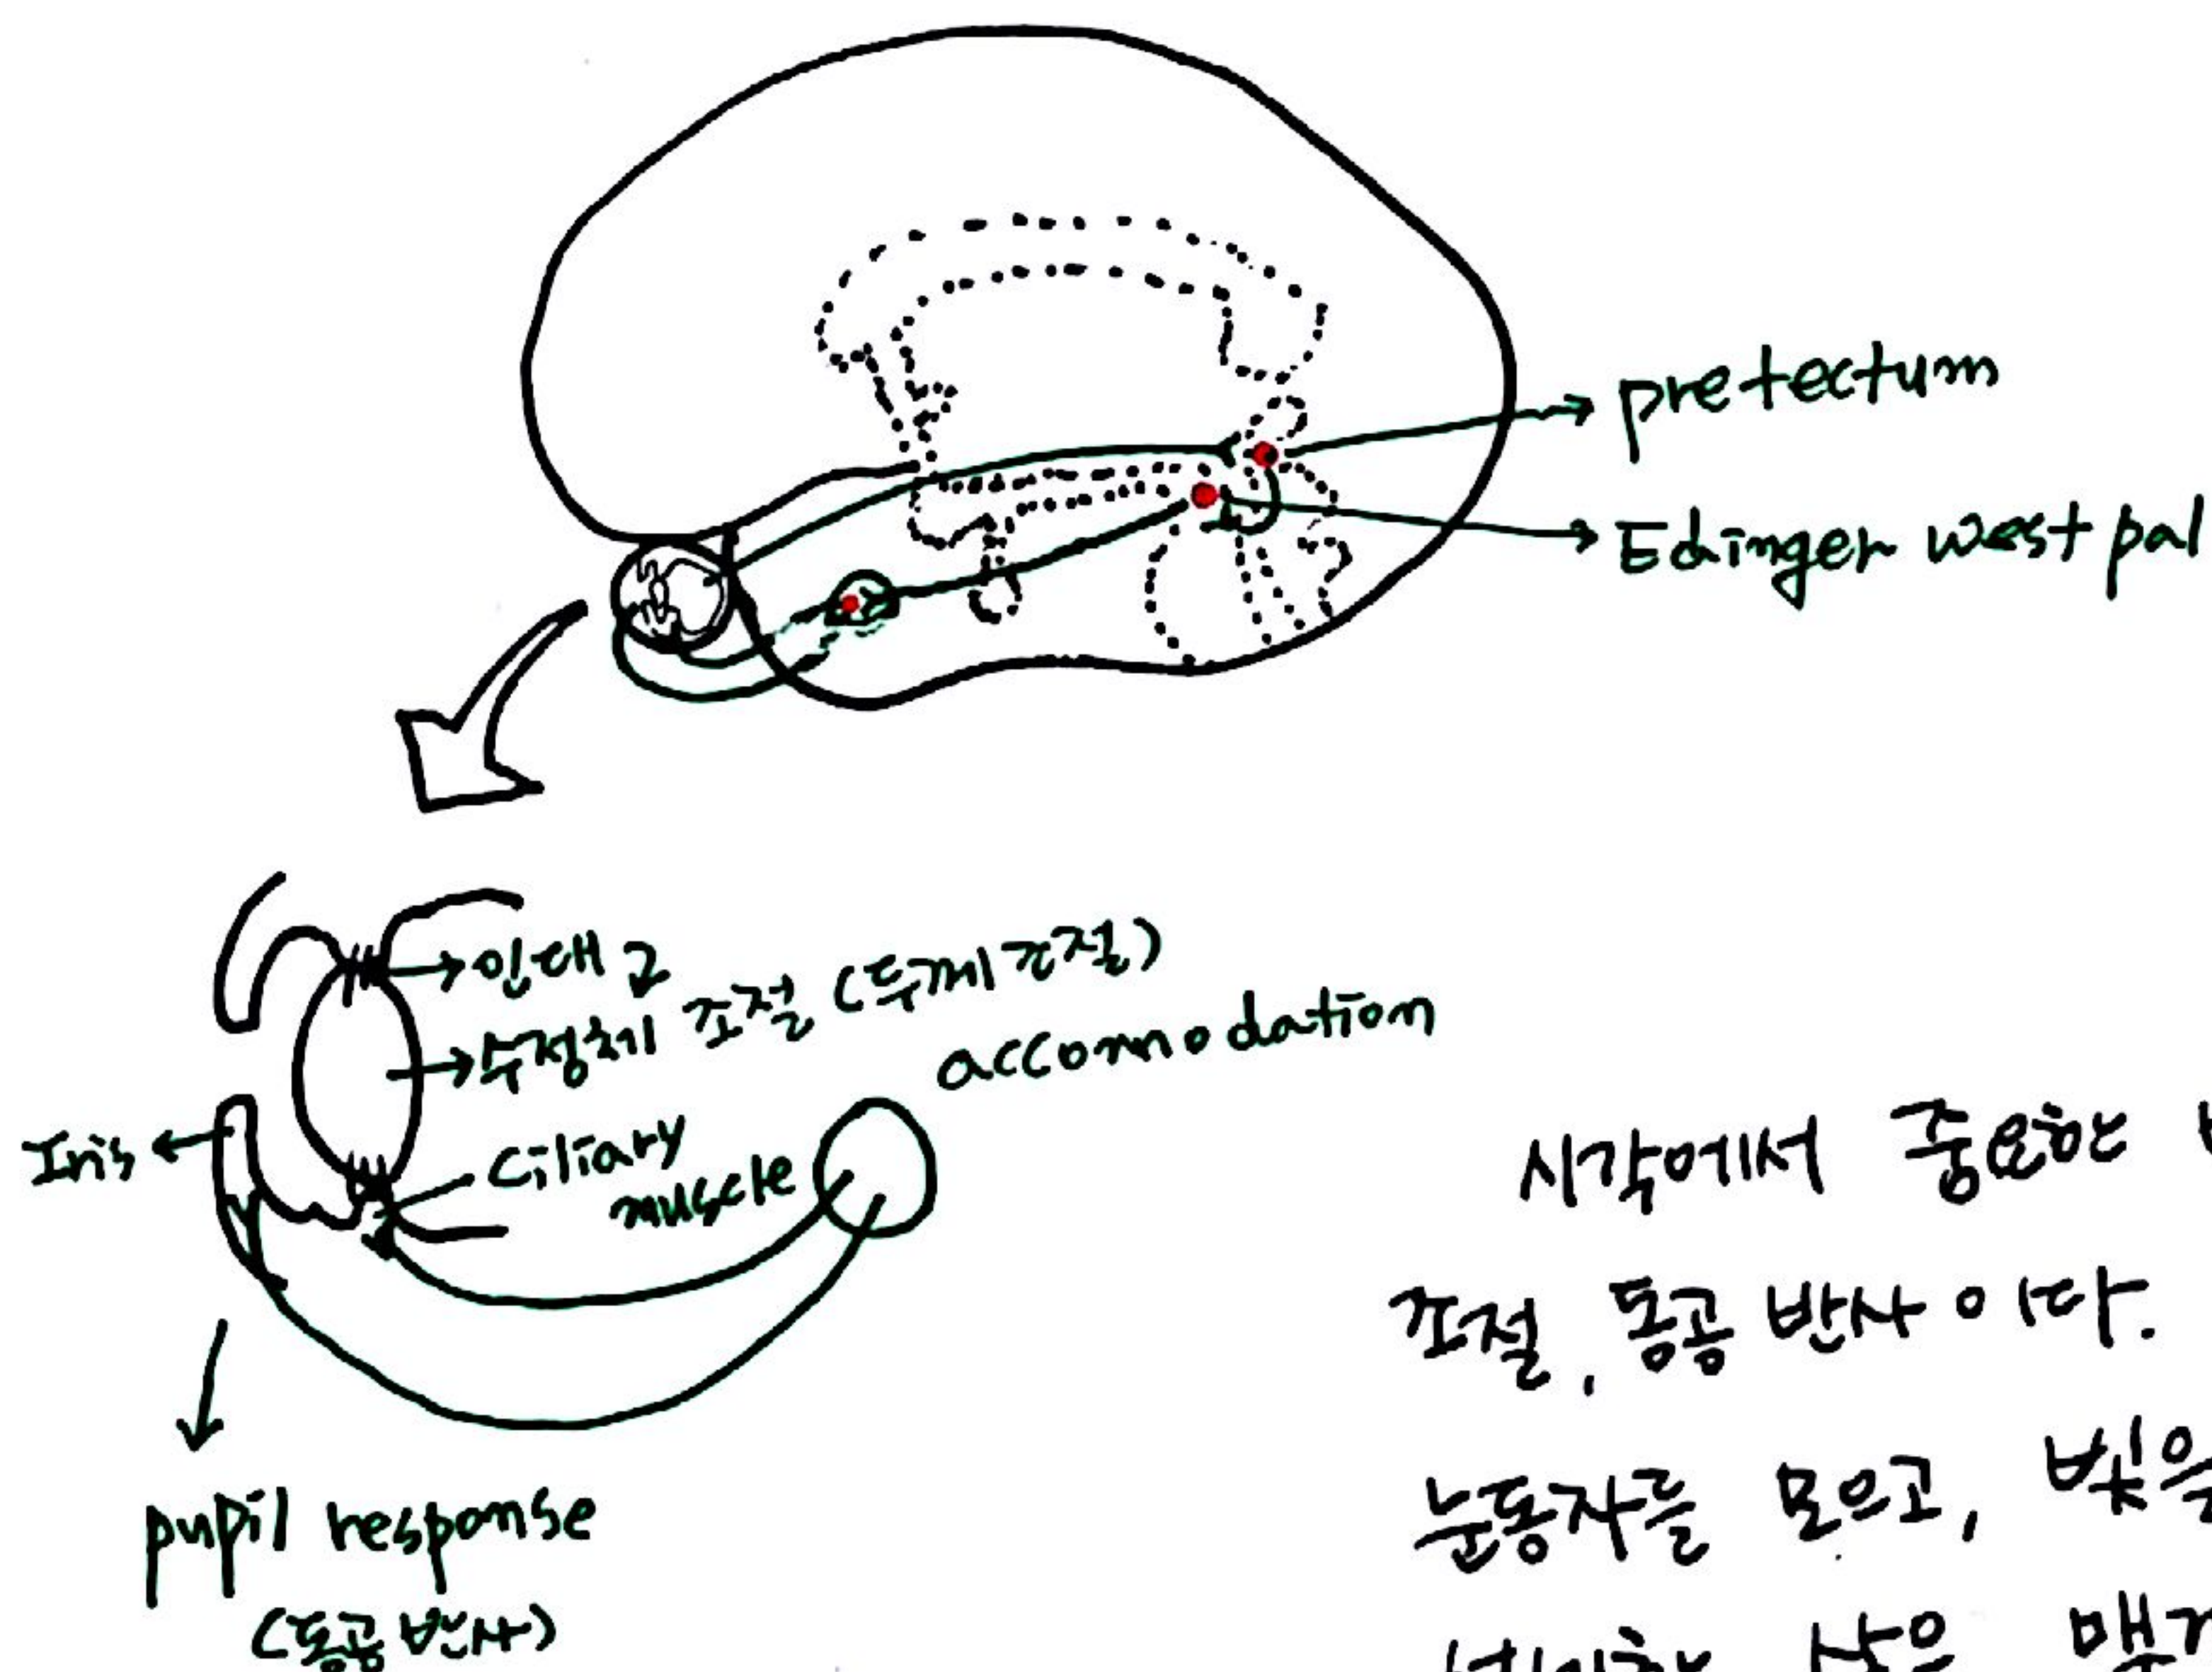 pretectum
Edinger westpal
인대고
수정체 조절 (두께조절)
accomodation
Iris
Ciliary
muscle
pupil response
(동공반사)
시각에서 중요한
조절, 동공 반사이다.
눈동자를 모으고, 빛을
상은